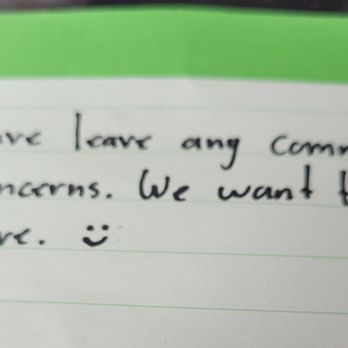 leave any comm
ncerns. We want t
re. :)